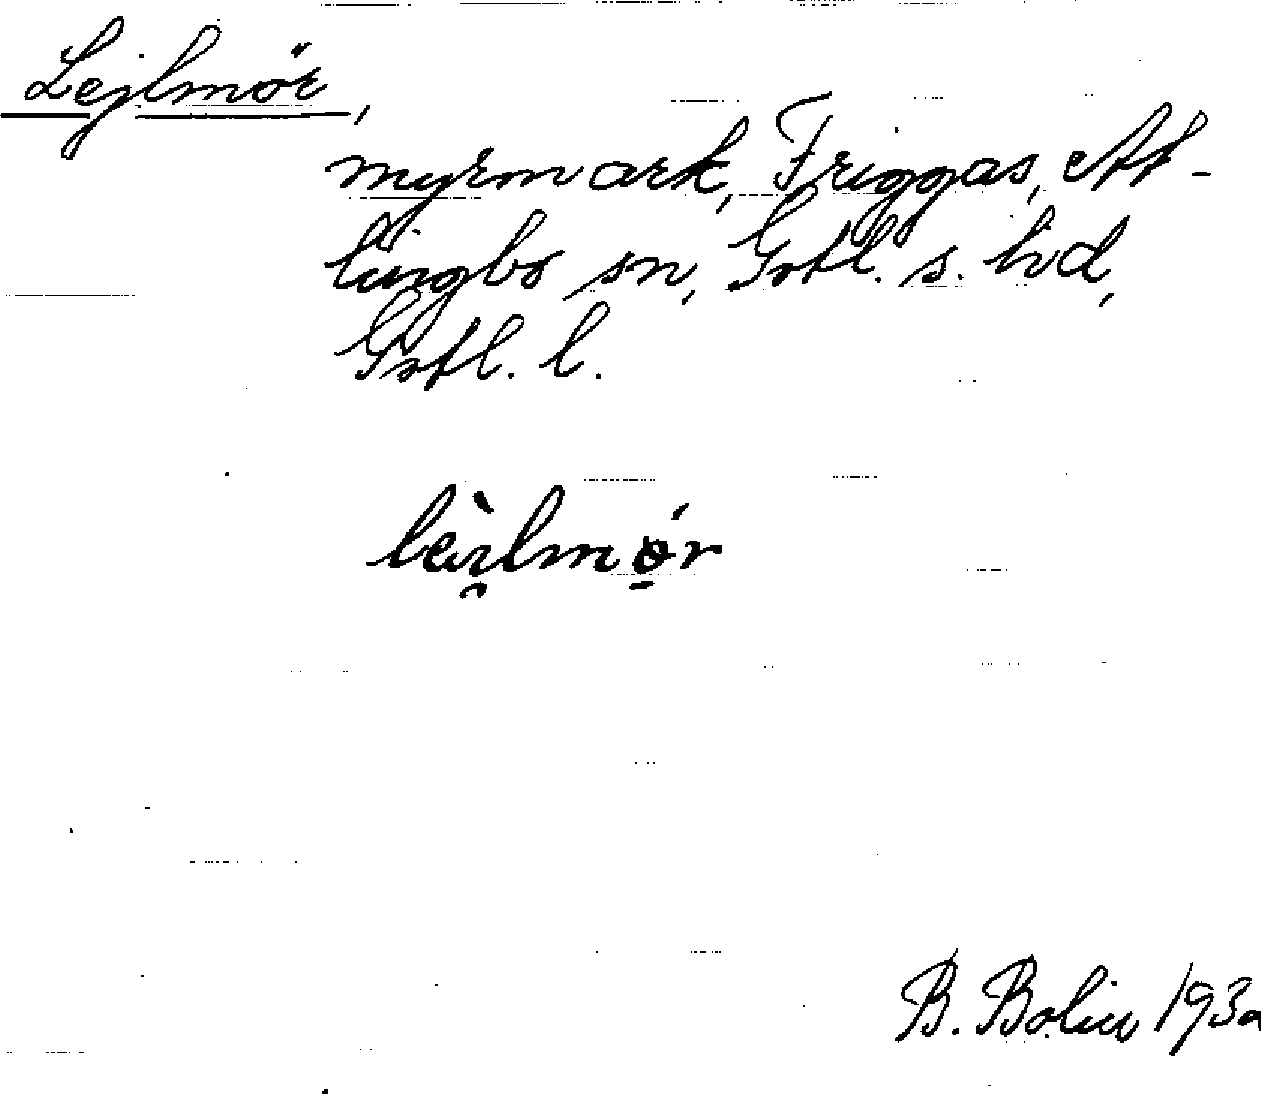 Lejlmör,
myrmark, Friggas, At-
lingbo sn, Gotl. s. hd,
Gotl. l.
B. Bolin 1930